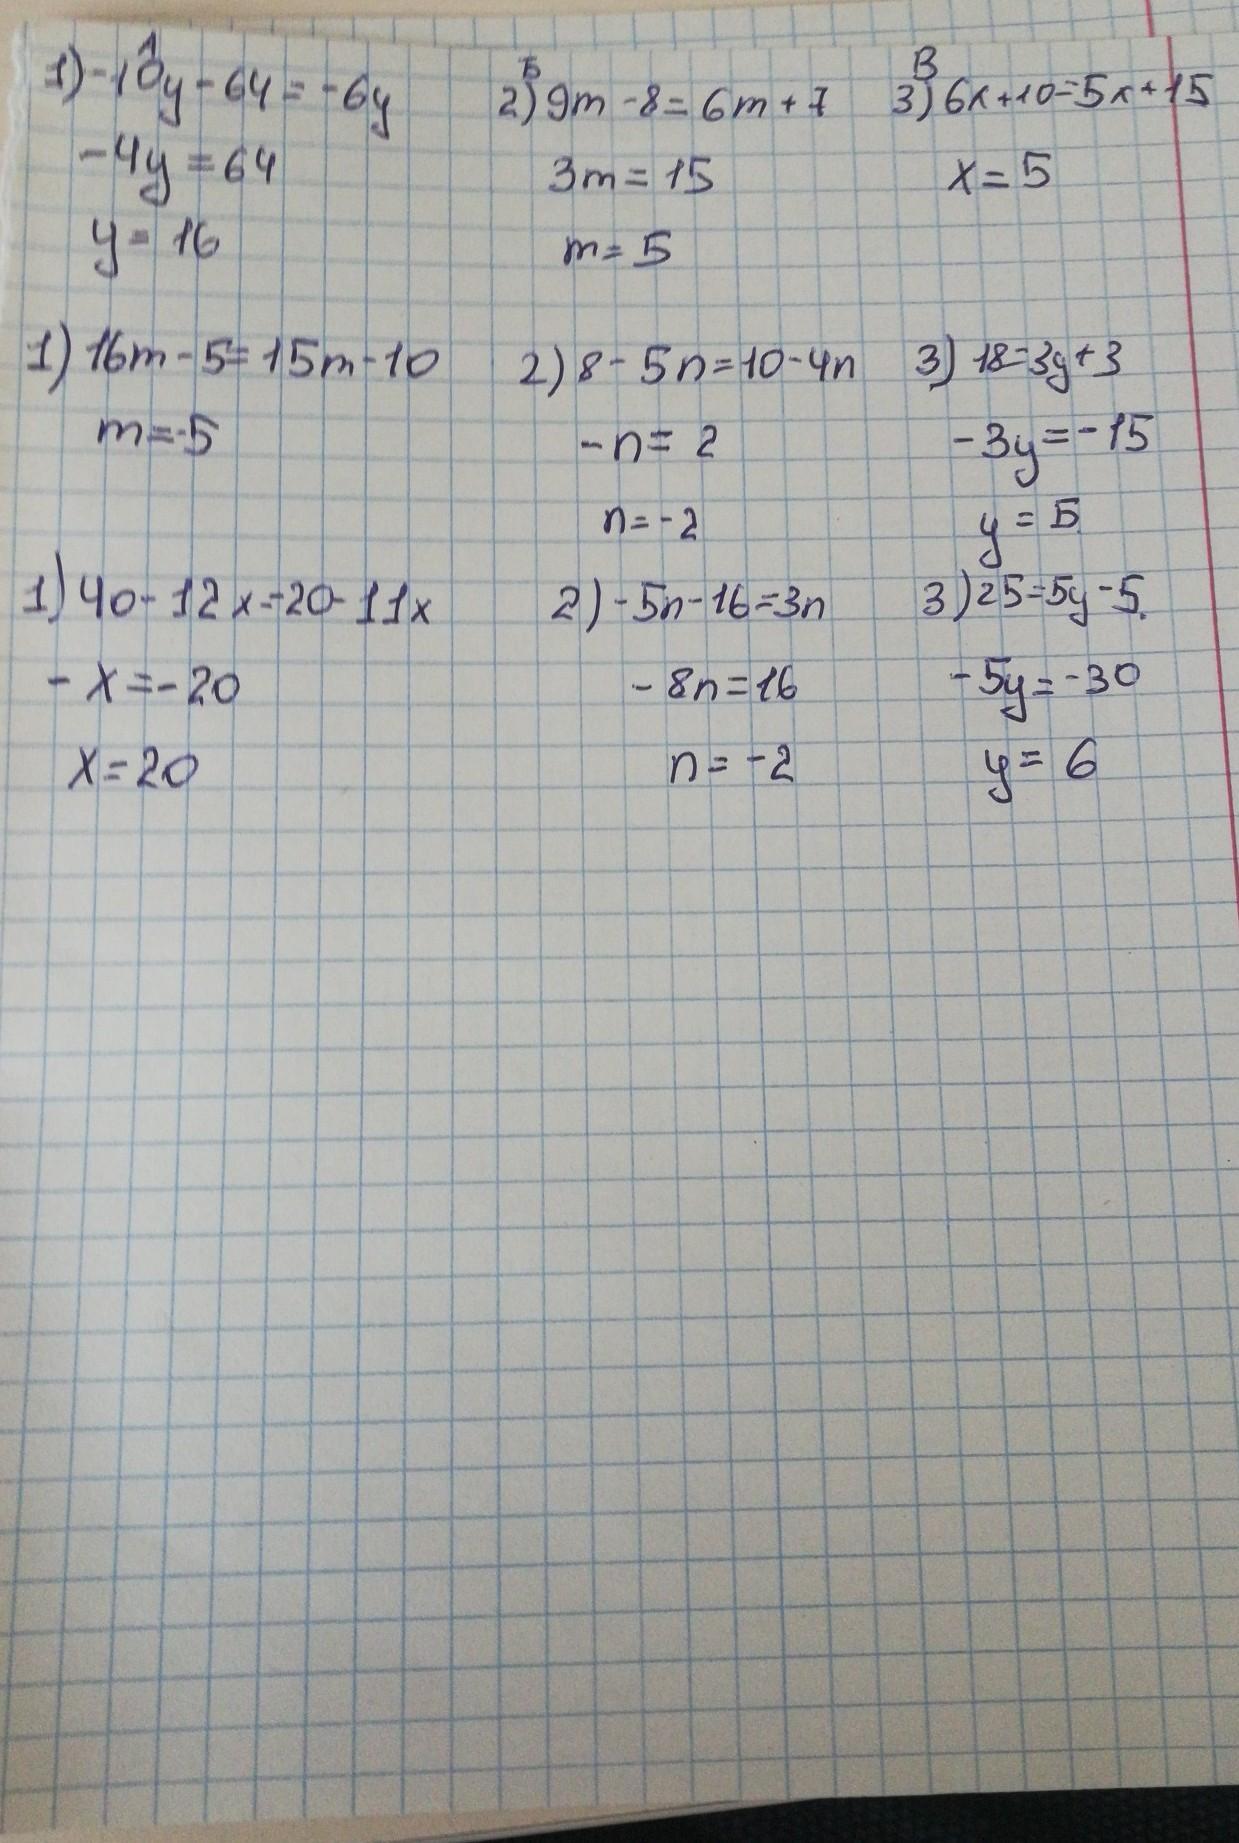 А Б В
1) -10y - 64 = -6y 2) 9m - 8 = 6m + 7 3) 6x + 10 = 5x + 15
-4y = 64 3m = 15 x = 5
y = 16 m = 5
1) 16m - 5 = 15m - 10 2) 8 - 5n = 10 - 4n 3) 18 = 3y + 3
m = -5 -n = 2 -3y = -15
n = -2 y = 5
1) 40 - 12x = 20 - 11x 2) -5n - 16 = 3n 3) 25 = 5y - 5
-x = -20 -8n = 16 -5y = -30
x = 20 n = -2 y = 6